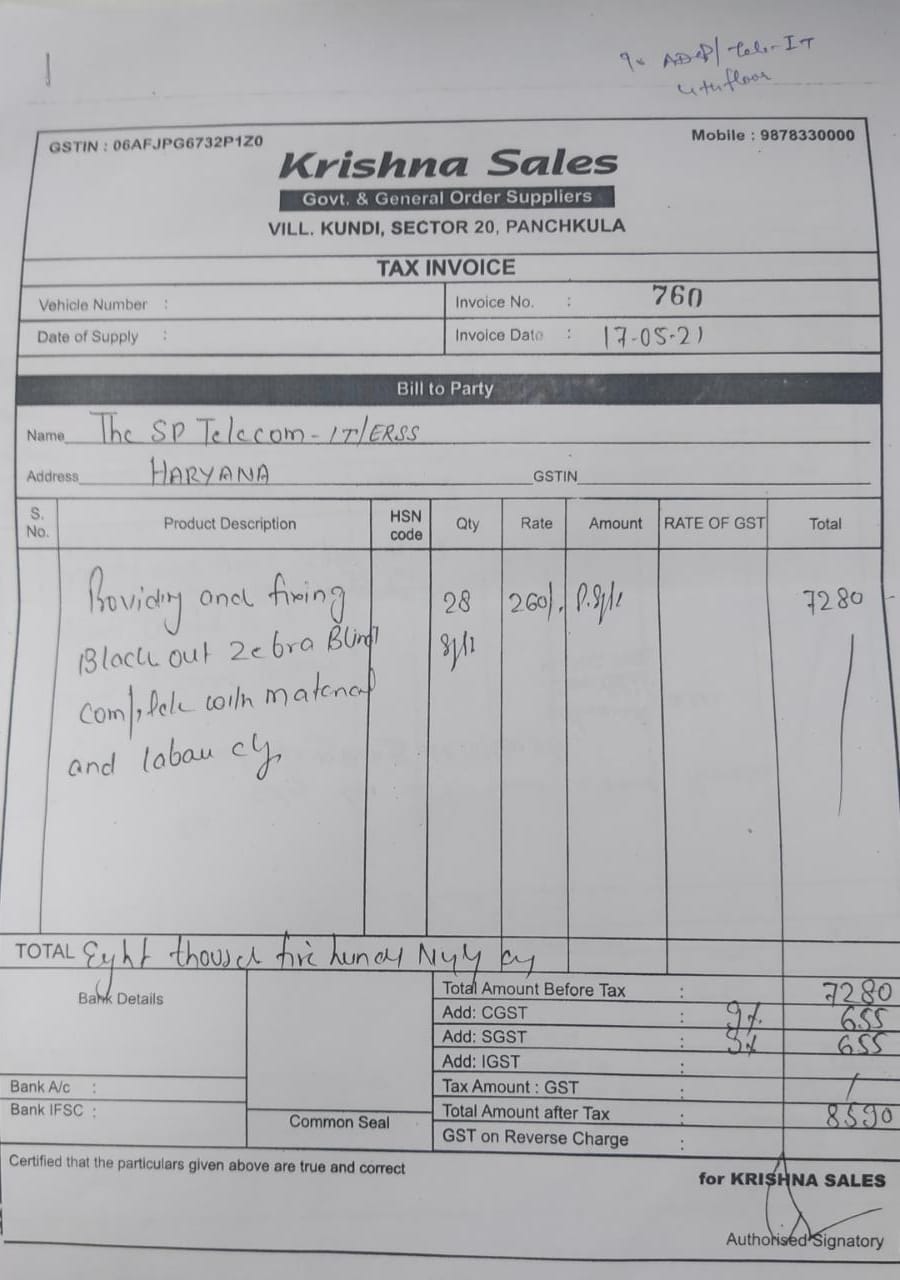 9x ADGP/Tele-IT
4th floor
GSTIN : 06AFJPG6732P1Z0
Mobile : 9878330000
Krishna Sales
Govt. & General Order Suppliers
VILL. KUNDI, SECTOR 20, PANCHKULA
TAX INVOICE
Vehicle Number :
Invoice No. : 760
Date of Supply :
Invoice Date : 17-05-21
Bill to Party
Name The SP Telecom-IT/ERSS
Address HARYANA GSTIN
S. No. Product Description HSN code Qty Rate Amount RATE OF GST Total
Providing and fixing 28 260/. P.Sft 7280
Black out Zebra Blind Sft
Complete with material
and labour
TOTAL Eight thousand five hundred Ninety
Bank Details
Total Amount Before Tax : 7280
Add: CGST : 9% 655
Add: SGST : 9% 655
Add: IGST :
Bank A/c :
Tax Amount : GST :
Bank IFSC :
Total Amount after Tax : 8590
Common Seal
GST on Reverse Charge :
Certified that the particulars given above are true and correct
for KRISHNA SALES
Authorised Signatory